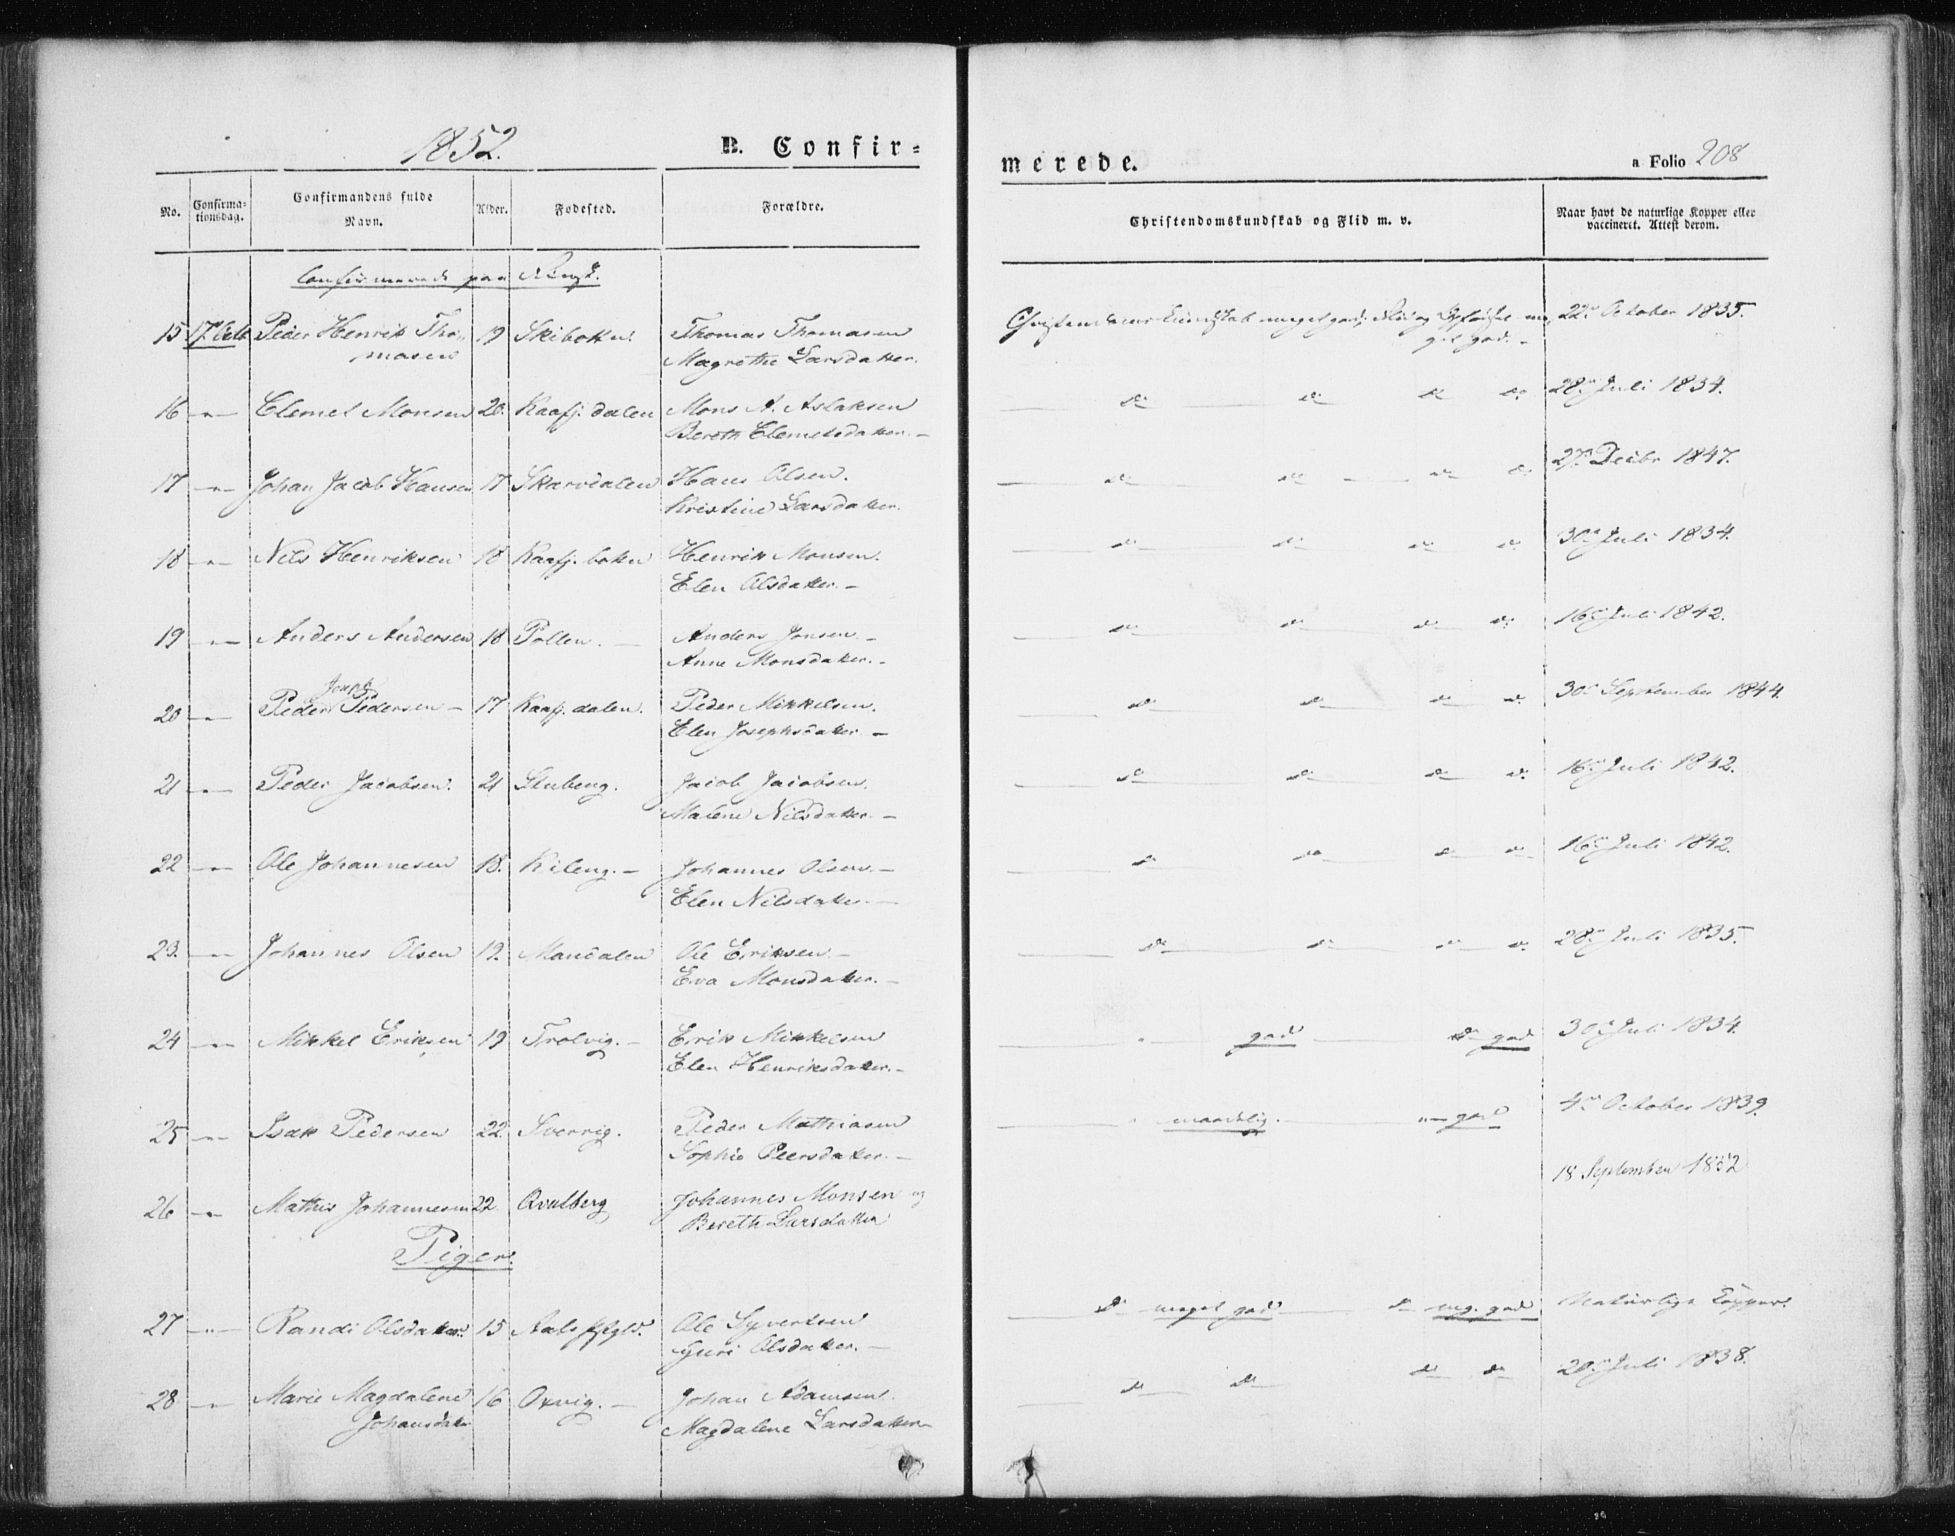 1852.
B. Confir-
merede.
a Folio 208
No.
Confirma-
tionsdag.
Confirmandens fulde
Navn.
Alder.
Fødested.
Forældre.
Christendomskundskab og Flid m. v.
Naar havt de naturlige Kopper eller
vaccineret. Attest derom.
Confirmerede paa
15 17 Peder Henrik Tho- 19 Skibotten Thomas Thomasen Christendomskundskab meget god; Flid og 22 October 1835.
masen Magrethe Larsdatter. get god. -
16 -"- Clemet Monsen 20. Kaafj. dalen Mons A. Aslaksen do do do do 28 Juli 1834.
Bereth Clemetsdatter. -
17 -"- Johan Jacob Hansen 17 Skarvdalen Hans Olsen. do do do do 27 Decbr 1847.
Kristine Larsdatter.
18 -"- Nils Henriksen 18 Kaafj. botten Henrik Monsen. do do do do 30 Juli 1834.
Elen Olsdatter. -
19 -"- Anders Andersen 18 Pollen. - Anders Jonsen - do do do do 16 Juli 1842.
Anne Monsdatter. -
20 -"- Peder Pedersen - 17 Kaafj. dalen. Peder Mikkelsen. do do do do 30 September 1844.
Elen Josephsdatter -
21 -"- Peder Jacobsen. 21 Jacob Jacobsen. do do do do 16 Juli 1842.
Malene Nilsdatter. -
22 -"- Ole Johannesen 18. Kileng. - Johannes Olsen. - do do do do 16 Juli 1842.
Elen Nilsdatter -
23. -"- Johannes Olsen 19. Mandalen Ole Eriksen - do do do do 28 Juli 1835.
Eva Monsdatter. -
24 -"- Mikkel Eriksen 19 Trolvig. - Erik Mikkelsen " god do god 30 Juli 1834.
Elen Henriksdatter. -
25 -"- Isak Pedersen 22. Peder Mathiasen " maadelig. god 4 October 1839.
Sophie Peersdatter. -
18 September 1852
26 -"- Mathis Johannesen 22. Qvalberg Johannes Monsen og
Bereth Larsdatter
Piger.
27 -"- Randi Olsdatter 15 Ole Syvertsen do meget god do meg. god Naturlige Kopper.
Guri Olsdatter. -
28 -"- Marie Magdalene 16 Oxvig. - Johan Adamsen. do do do do 20 Juli 1838.
Johansdatter Magdalene Larsdatter